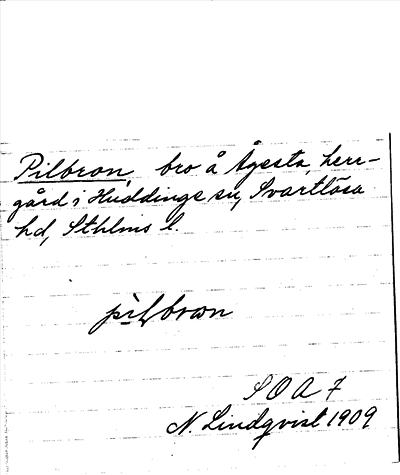 Pilbron, bro å Ågesta herr-
gård i Huddinge sn, Svartlösa
hd, Sthlms l.
pilbron
SOA 7
N. Lindqvist 1909